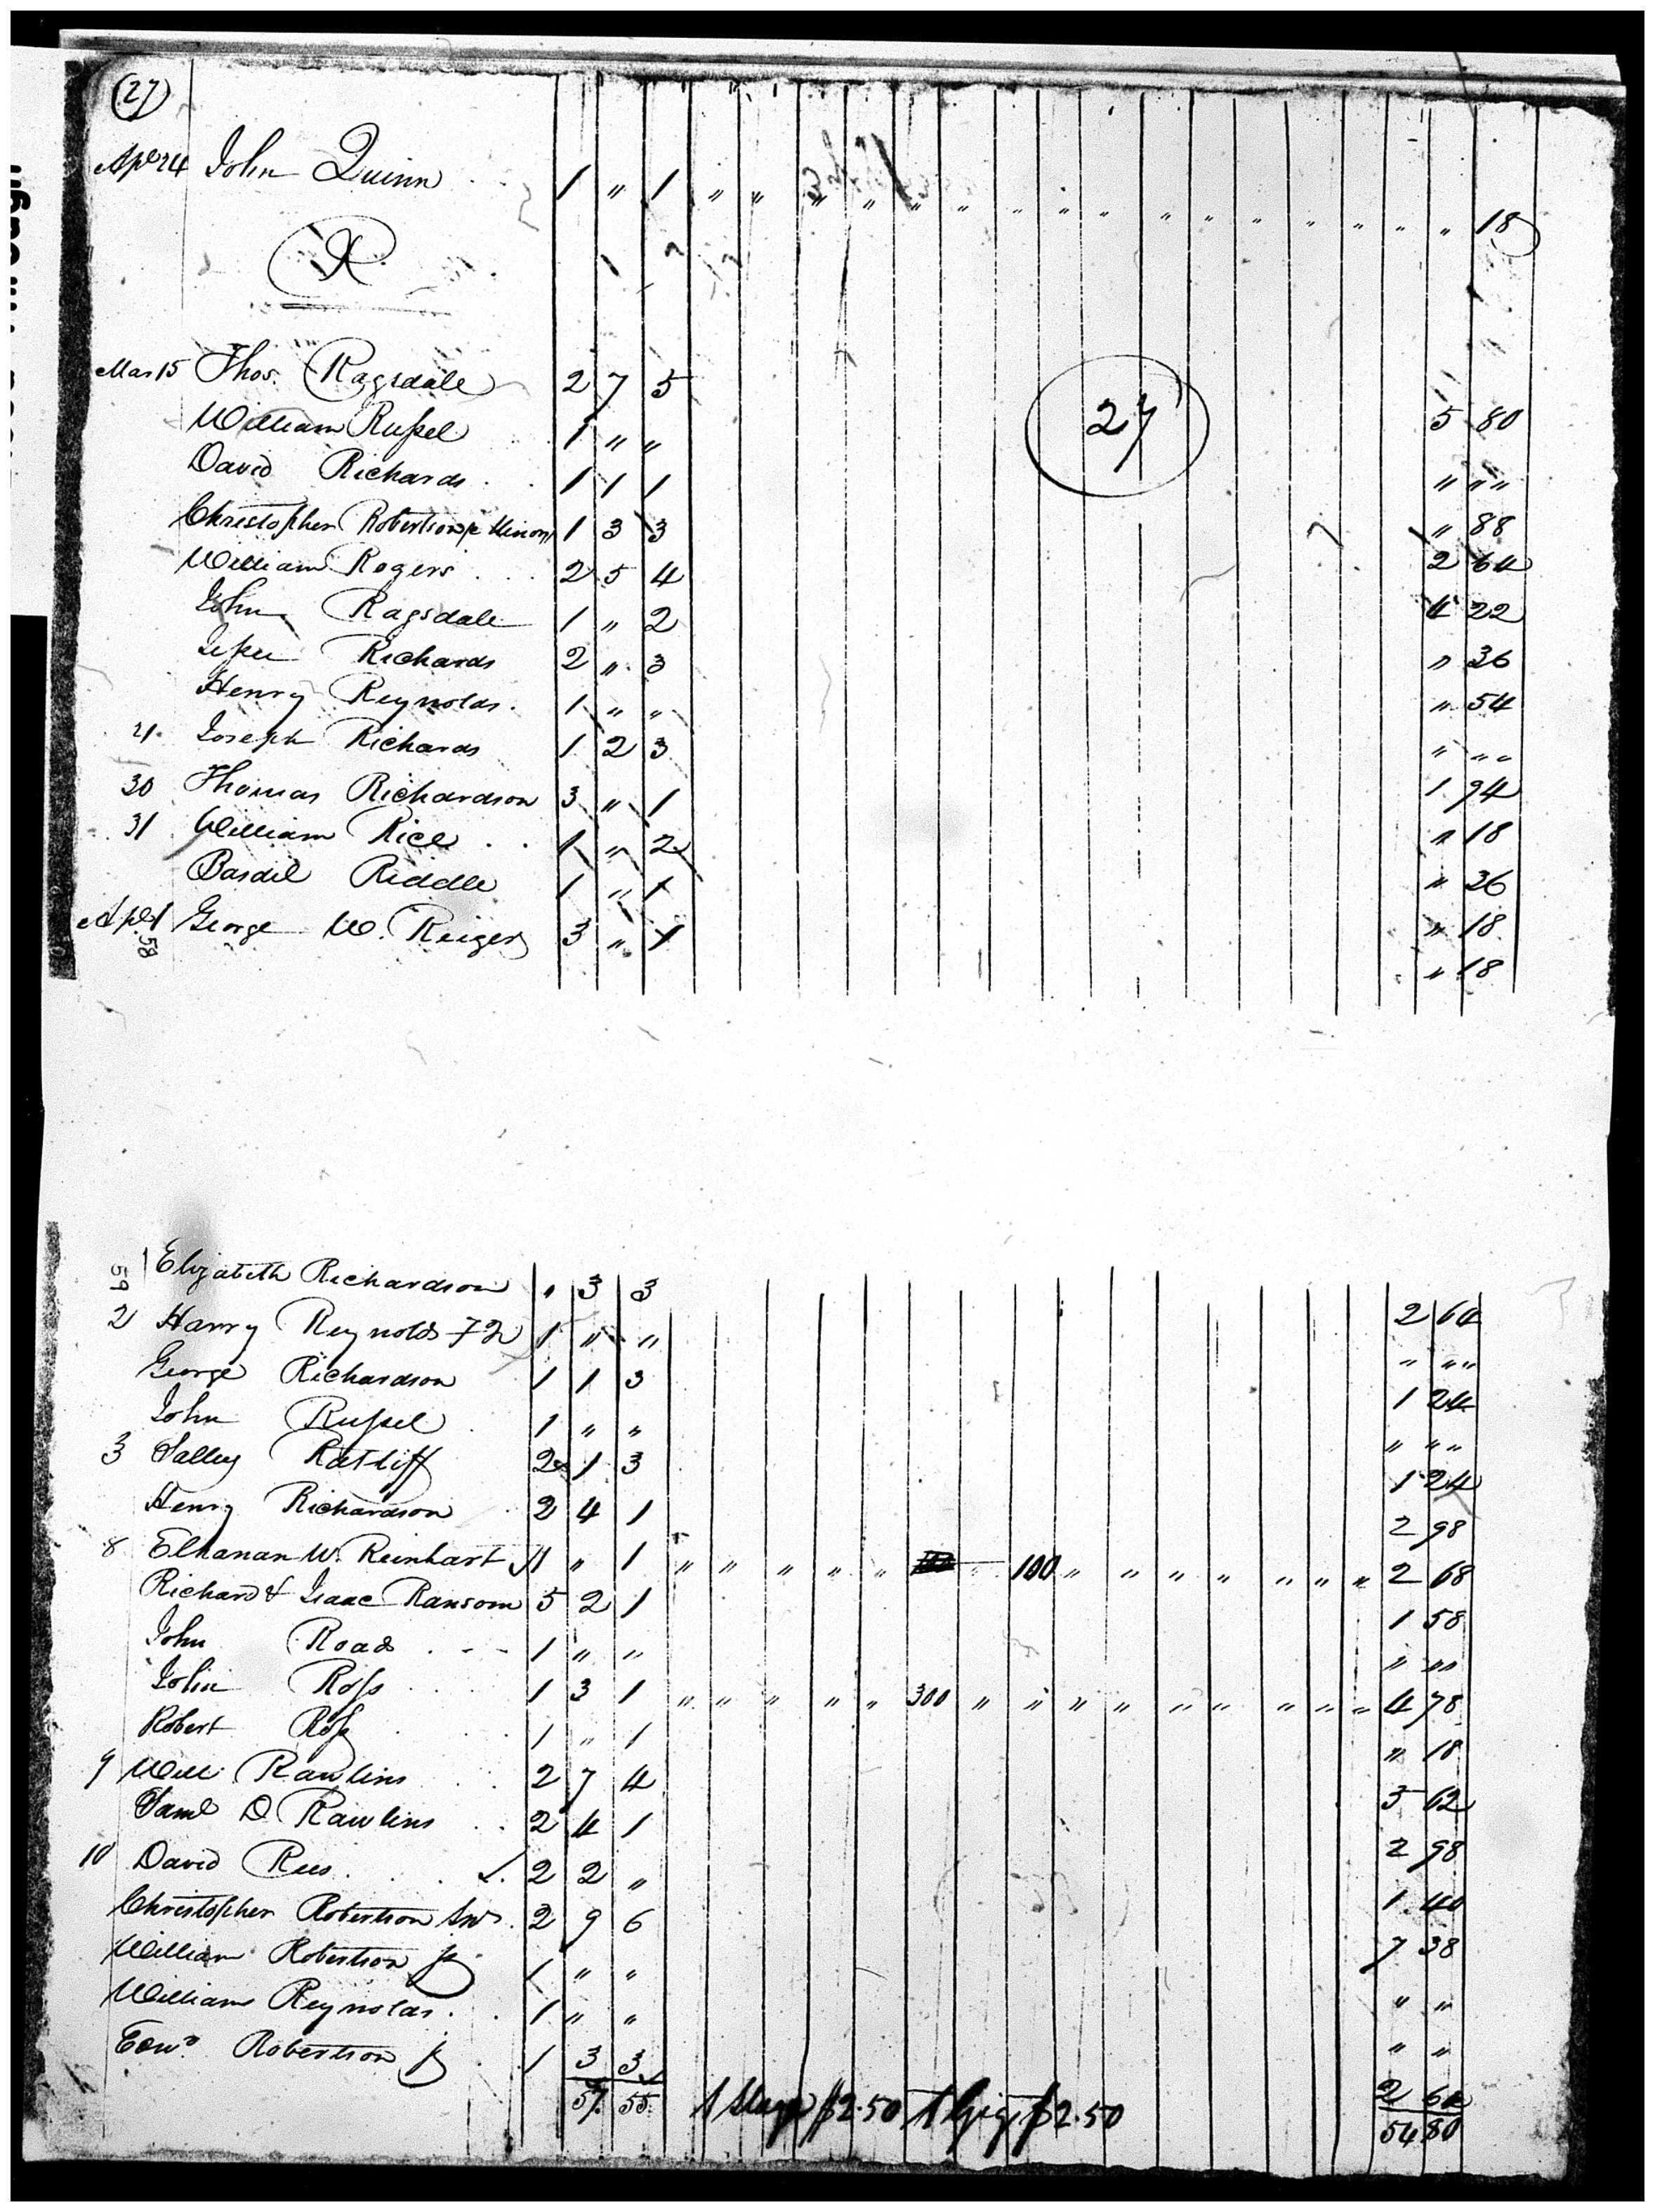 (27)
Apl 24 John Quinn 1 " 1 " " " " " " " " " " " " " " " " 18
R
27
Mar 15 Thos. Ragsdale 2 7 5 5 80
William Russel 1 " " " " "
David Richards 1 1 1 " 88
Christopher Robertson 1 3 3 2 64
William Rogers 2 5 4 4 22
John Ragsdale 1 " 2 " 36
Jesse Richards 2 " 3 " 54
Henry Reynolds 1 " " " " "
21 Joseph Richards 1 2 3 1 94
30 Thomas Richardson 3 " 1 " 18
31 William Rice 1 " 2 " 36
Basdil Riddle 1 " 1 " 18
Apl 1 George W. Reiger 3 " 1 " 18
58
59
1 Elizabeth Richardson " 3 3 2 64
2 Harry Reynolds 1 " " " " "
George Richardson 1 1 3 1 24
John Russel 1 " " " " "
3 Salley Ratliff 2 1 3 1 24
Henry Richardson 2 4 1 2 98
8 Elhanan W. Reinhart 1 " 1 " " " " " 100 " " " " " " " 2 68
Richard & Isaac Ransom 5 2 1 1 58
John Road 1 " " " " "
John Ross 1 3 1 " " " " " 300 " " " " " " " " " 4 78
Robert Ross 1 " 1 " 18
9 Will Rawlins 2 7 4 5 62
Saml D. Rawlins 2 4 1 2 98
10 David Rees 2 2 " 1 40
Christopher Robertson Snr. 2 9 6 7 38
William Robertson Jr 1 " " " "
William Reynolds 1 " " " "
Edwd. Robertson Jr 1 3 3 2 64
57 55 1 Stage $2.50 1 Gig $2.50 54 80